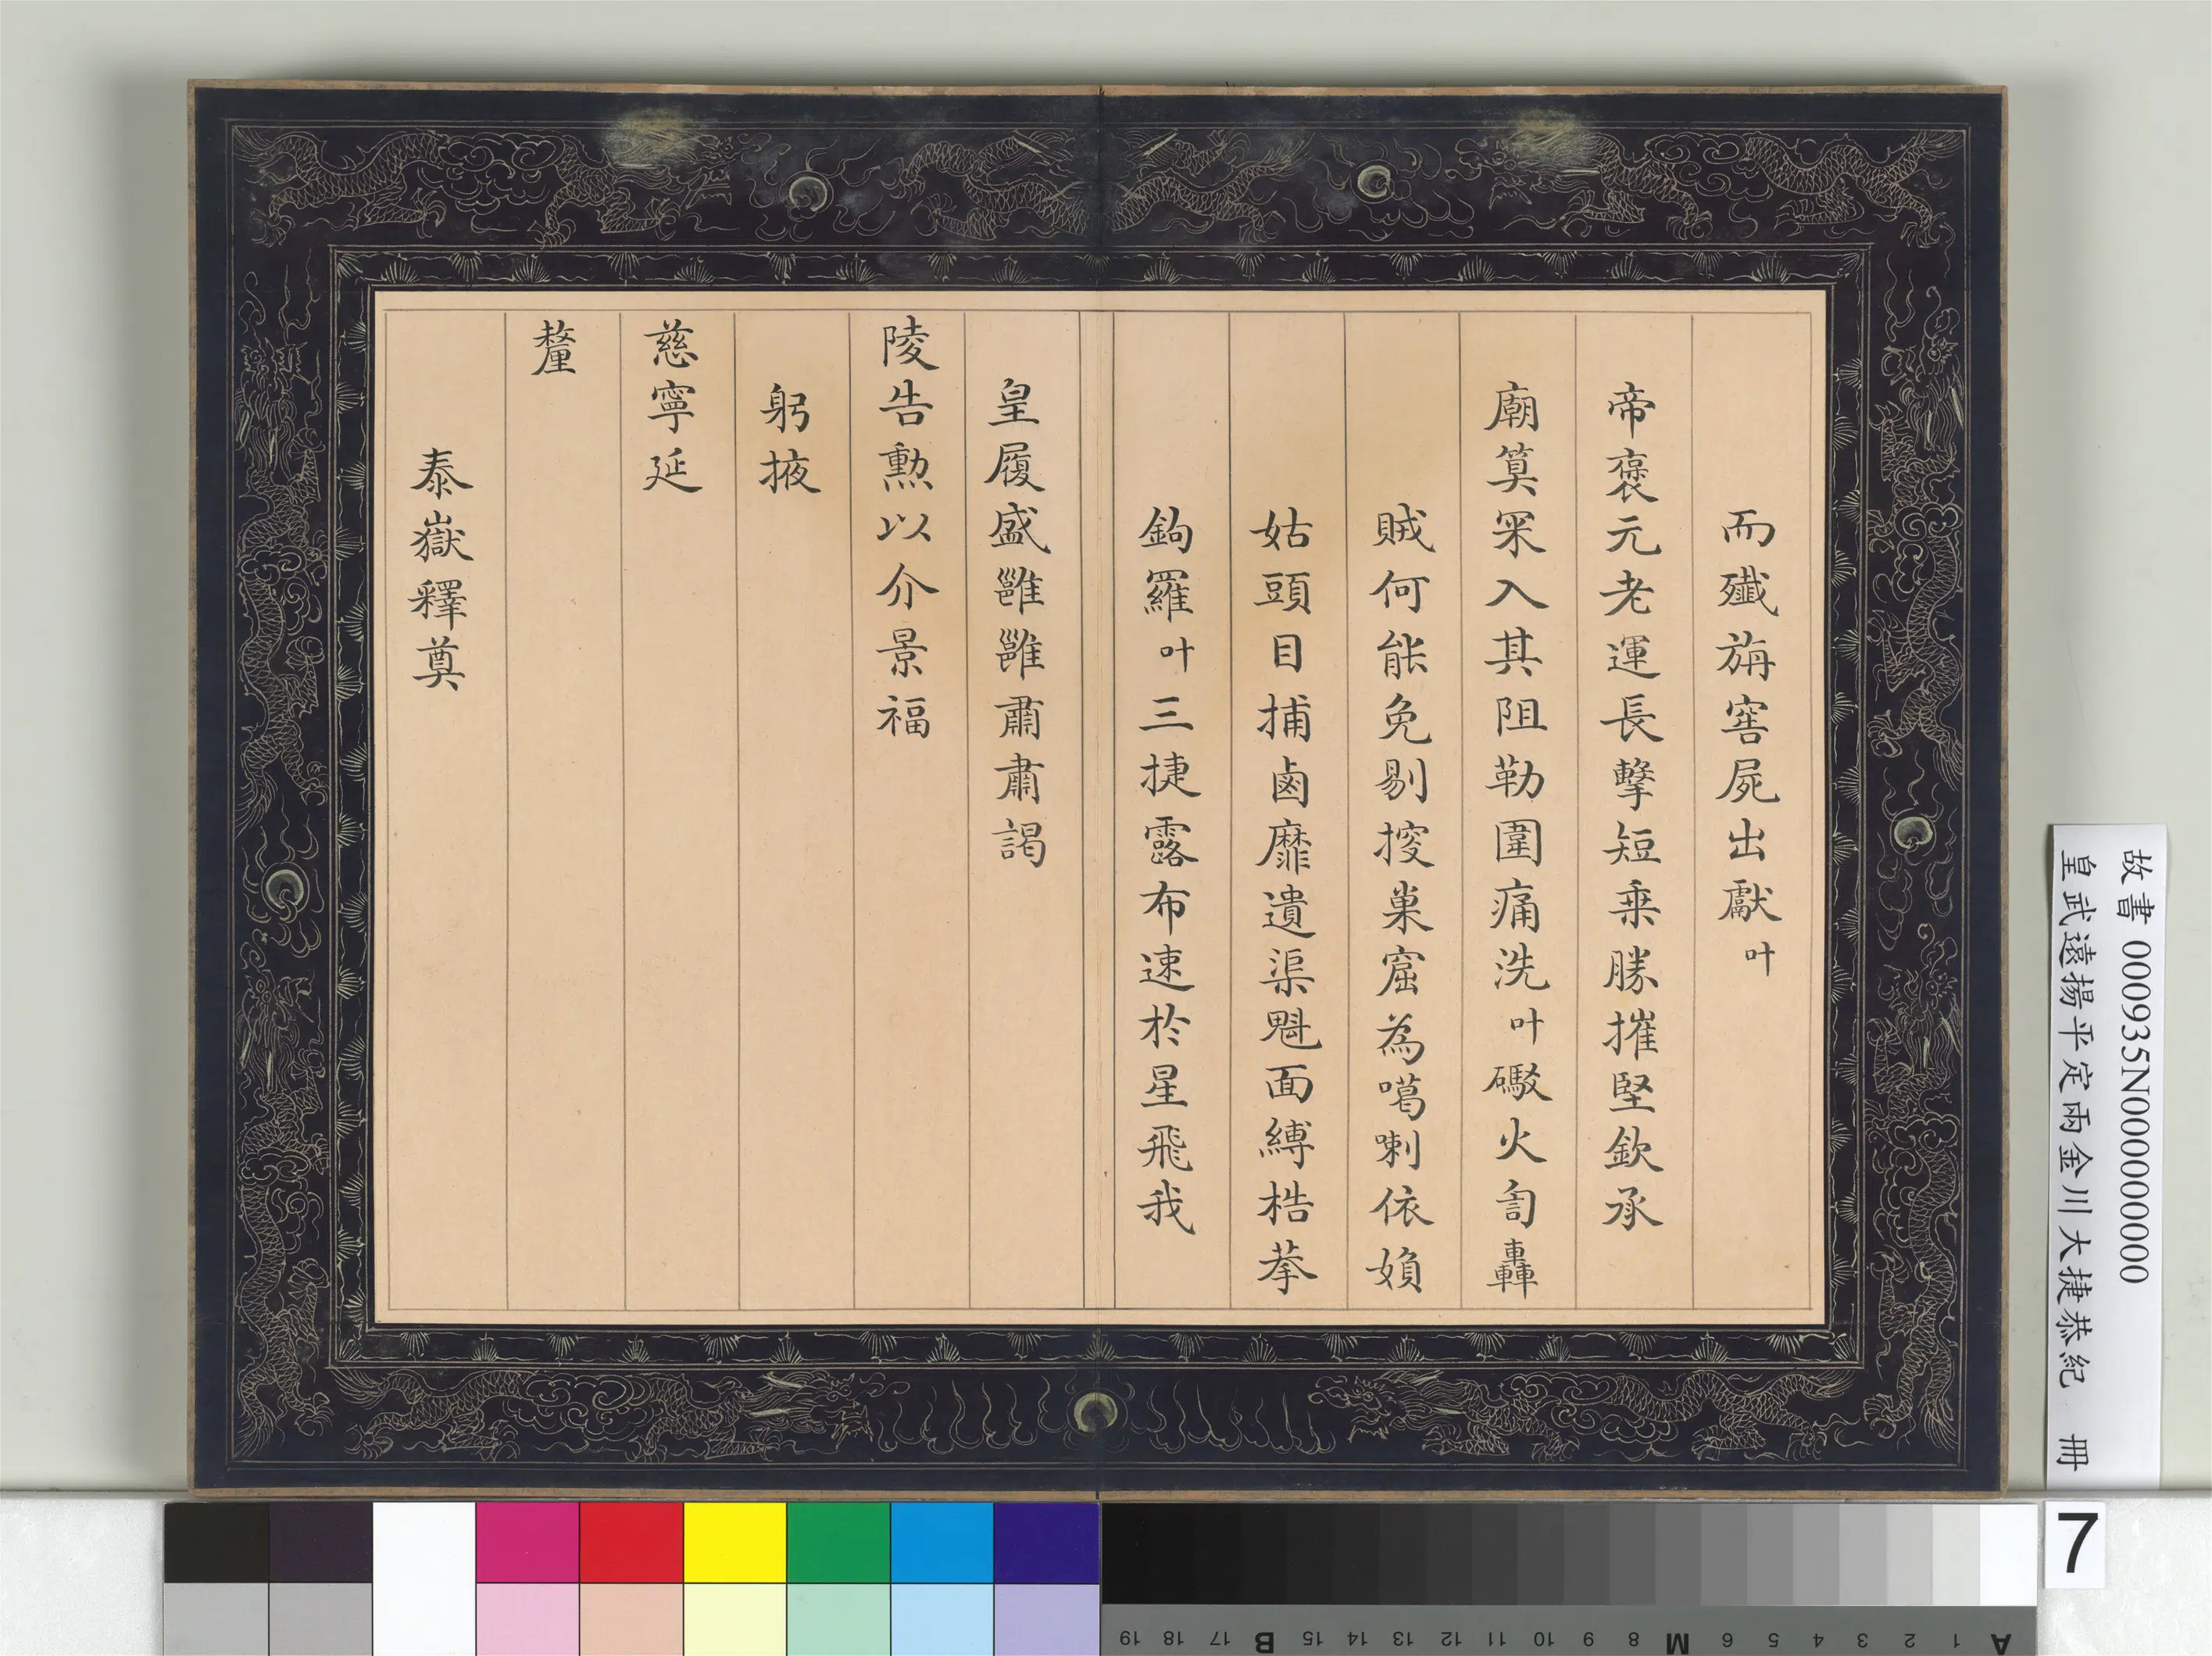 而殲旃窖屍出獻叶
帝褒元老運長擊短乗勝摧堅欽承
廟筭冞入其阻勒圍痛洗叶礮火訇轟
賊何能免剔揬巢窟為噶喇依嬪
姑頭目捕鹵靡遺渠魁面縛梏拲
鉤羅叶三捷露布速於星飛我
皇履盛雝雝肅肅謁
陵告勲以介景福
躬掖
慈寧延
釐
泰嶽釋奠
故書 000935N000000000
皇武遠揚平定兩金川大捷恭紀 冊
7
A 1 2 3 4 5 6 M 8 9 10 11 12 13 14 15 B 17 18 19